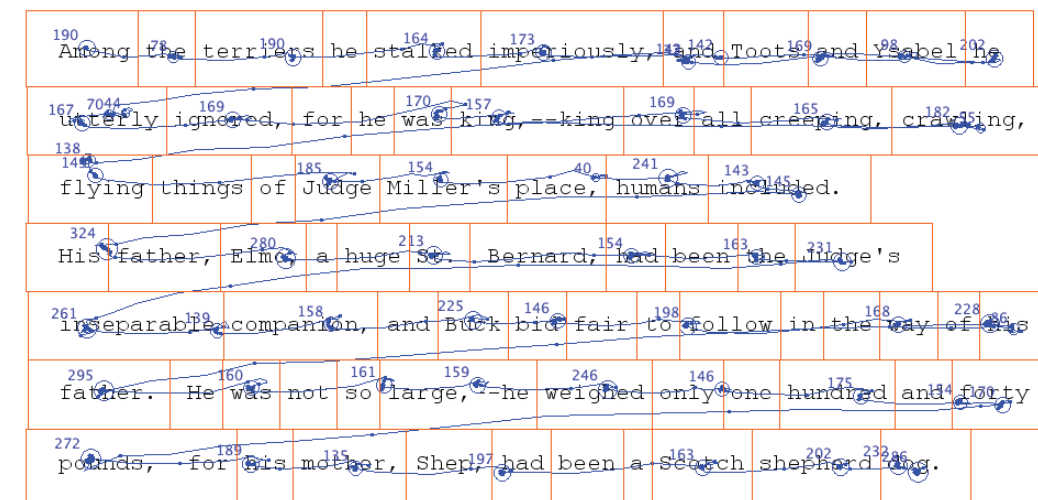 Among the terriers he stalked imperiously, and Toots and Ysabel he
utterly ignored, for he was king,--king over all creeping, crawling,
flying things of Judge Miller's place, humans included.
His father, Elmo, a huge St. Bernard, had been the Judge's
inseparable companion, and Buck bid fair to follow in the way of his
father. He was not so large,--he weighed only one hundred and forty
pounds, for his mother, Shep, had been a Scotch shepherd dog.
190 78 190 164 173 142 142 169 98 202
167 7044 169 170 157 169 165 182
138
185 154 40 241 143 145
324 280 213 154 163 231
261 139 158 225 146 198 168 228 86
295 160 161 159 246 146 175 154 170
272 189 135 197 163 202 232 286